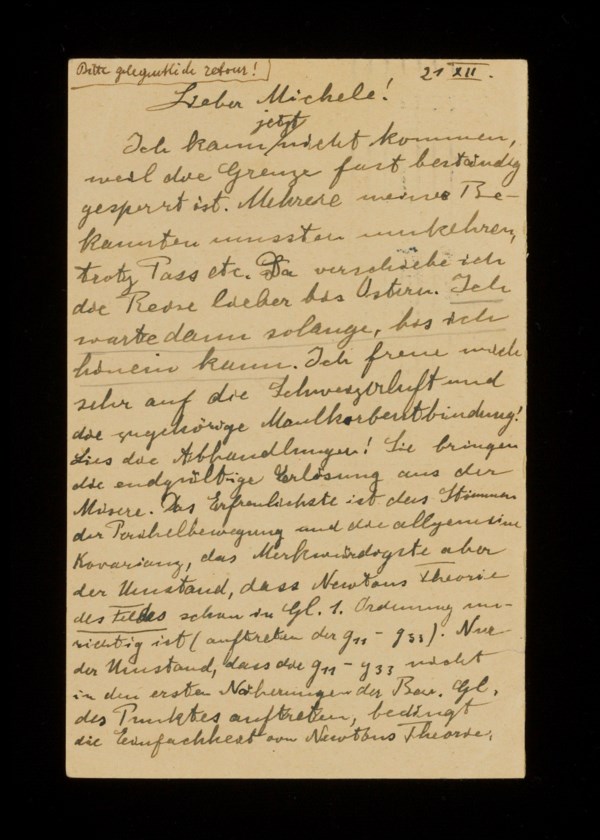 Bitte gelegentlich retour!
21 XII.
Lieber Michele!
jetzt
Ich kann nicht kommen,
weil die Grenze fast beständig
gesperrt ist. Mehrere meiner Be-
kannten mussten umkehren,
trotz Pass etc. Da verschiebe ich
die Reise lieber bis Ostern. Ich
warte dann solange, bis ich
hinein kann. Ich freue mich
sehr auf die Schweizerluft und
die zugehörige Maulkorbentbindung!
Lies die Abhandlungen! Sie bringen
die endgültige Erlösung aus der
Misere. Das Erfreulichste ist das Stimmen
der Perihelbewegung und die allgemeine
Kovarianz, das Merkwürdigste aber
der Umstand, dass Newtons Theorie
des Feldes schon in Gl. 1. Ordnung un-
richtig ist (auftreten der g11 - g33). Nur
der Umstand, dass die g11 - g33 nicht
in den ersten Näherungen der Bew. Gl.
des Punktes auftreten, bedingt
die Einfachheit von Newtons Theorie.